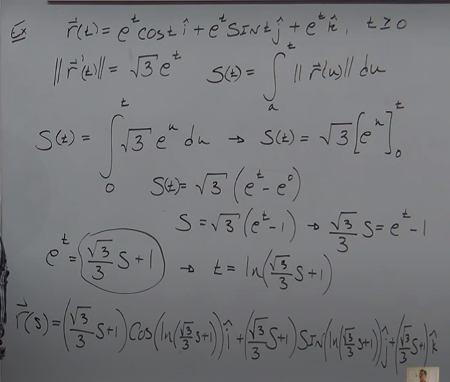 Ex r⃗(t) = e^t cos t î + e^t SIN t ĵ + e^t k̂, t ≥ 0
||r⃗'(t)|| = √3 e^t   S(t) = ∫_a^t ||r⃗'(u)|| du
S(t) = ∫_0^t √3 e^u du → S(t) = √3 [e^u]_0^t
S(t) = √3 (e^t - e^0)
S = √3 (e^t - 1) → √3/3 S = e^t - 1
e^t = √3/3 S + 1 → t = ln(√3/3 S + 1)
r⃗(s) = (√3/3 S + 1) COS(ln(√3/3 S + 1)) î + (√3/3 S + 1) SIN(ln(√3/3 S + 1)) ĵ + (√3/3 S + 1) k̂